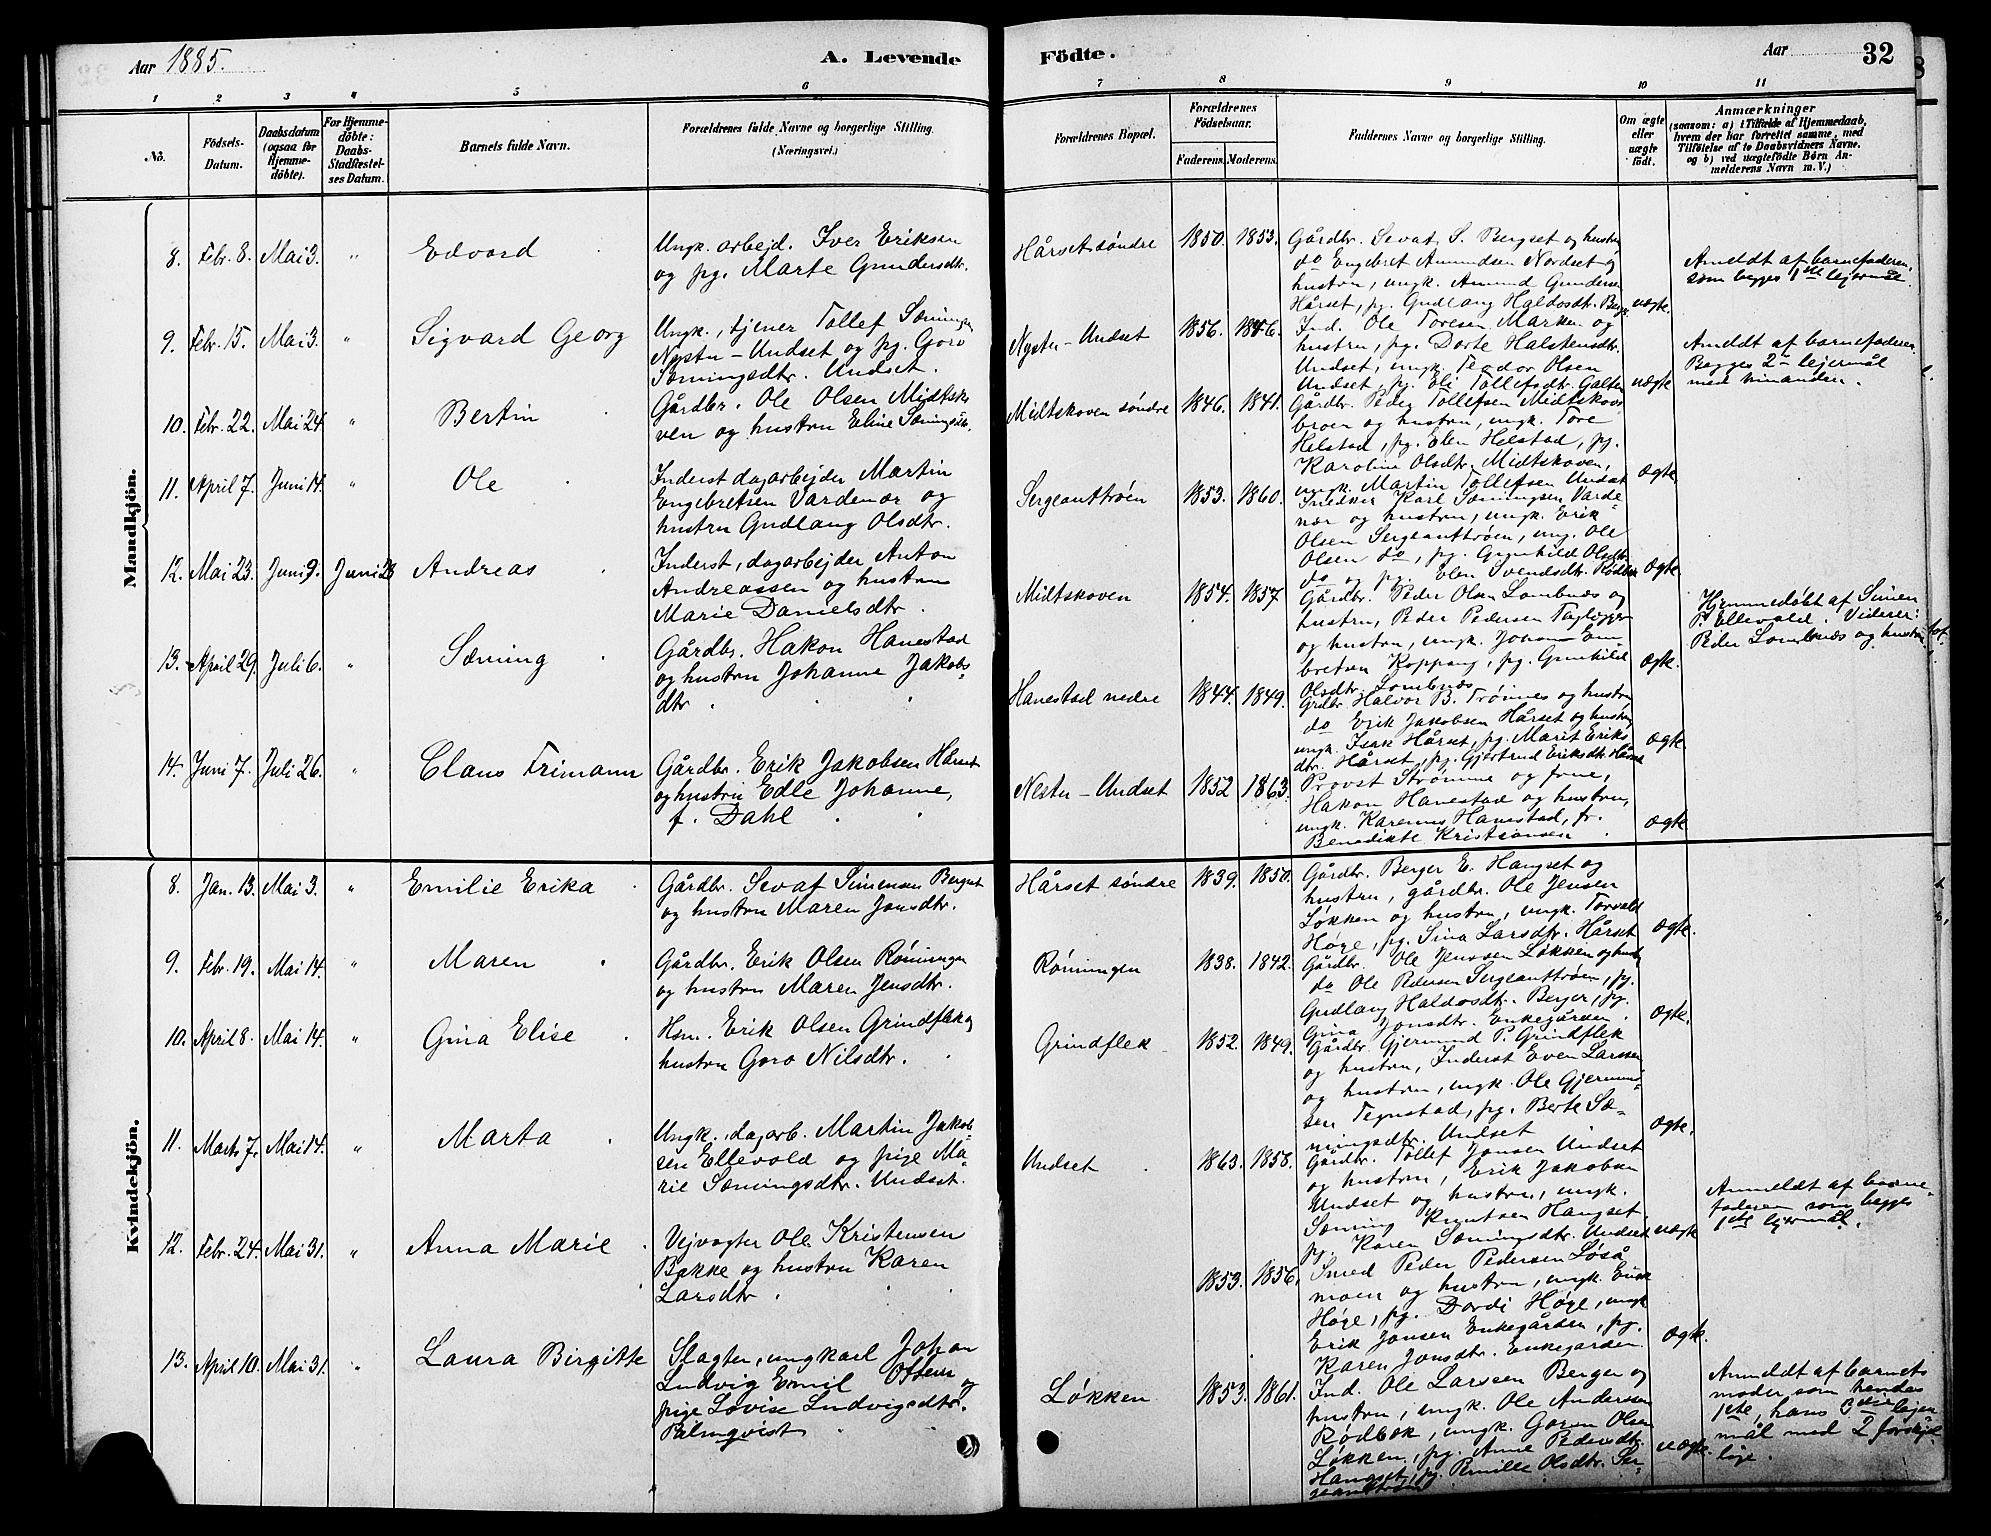 Aar 1885.
A. Levende
Födte.
Aar
32
1
2
3
4
5
6
7
8
9
10
11
No.
Födsels-
Datum.
Daabsdatum
(ogsaa for
Hjemme-
döbte).
For Hjemme-
döbte:
Daabs-
Stadfæstel-
ses Datum.
Barnets fulde Navn.
Forældrenes fulde Navne og borgerlige Stilling.
(Næringsvei.)
Forældrenes Bopæl.
Forældrenes
Födselsaar.
Faderens.
Moderens.
Faddernes Navne og borgerlige Stilling.
Om ægte
eller
uægte
födt.
Anmærkninger
(saasom: a) i Tilfælde af Hjemmedaab,
hvem der har forrettet samme, med
Tilföielse af to Daabsvidners Navne.
og b) ved uægtefödte Börn An-
melderens Navn m.V.)
Mandkjön.
8. Febr. 8. Mai 3. " Edvard
Ungk. arbejd. Iver Eriksen
og pg. Marte Gundersdtr.
Hårset søndre 1850. 1853.
Gårdbr. Sevat S. Bergset og hustru
do Engebret Amundsen Nordset og
hustru, ungk. Amund Gundersen
Hårset, pg. Gudlaug Haldosdt. Berg.
uægte.
Anmeldt af barnefaderen.
som begges 1ste lejermål.
9. Febr. 15. Mai 3. " Sigvard Georg
Ungk., tjener Tollef Sæmingsen
Nystu-Undset og pg. Goro
Sæmingsdtr. Undset.
Nystu-Undset 1856. 1846.
Ind. Ole Toresen Marken og
hustru, pg. Dorte Halstensdtr.
Undset, ungk. Teodor Olsen
Undset, pg. Eli Tollefsdtr. Galten
uægte
Anmeldt af barnefaderen.
Begges 2det lejermål
med hinanden.
10. Febr. 22. Mai 24. " Bertin
Gårdbr. Ole Olsen Midtsko-
ven og hustru Eline Sæmingsdtr.
Midtskoven søndre 1846. 1841.
Gårdbr. Peder Tollefsen Midtskov-
broen og hustru, ungk. Tore
Helstad, pg. Elen Helstad, pg.
Karoline Olsdtr. Midtskoven,
ungk. Martin Tollefsen Undset
ægte.
11. April 7. Juni 14. " Ole
Inderst dagarbejder Martin
Engebretsen Vardenær og
hustru Gudlaug Olsdtr.
Sergeanttrøen 1853. 1860.
Snedker Karl Sæmingsen Varde-
nær og hustru, ungk. Erik
Olsen Sergeanttrøen, ung. Ole
Olsen do, pg. Gunhild Olsdtr.
do og pg. Elen Svendsdtr. Rødbæk
ægte.
12. Mai 23. Juni 9. Juni 28 Andreas
Inderst, dagarbejder Anton
Andreassen og hustru
Marie Danielsdtr.
Midtskoven 1854. 1857
Gårdbr. Peder Olsen Lombnæs og
hustru, Peder Pedersen Taglægger
og hustru, ungk. Johan Em-
bretsen Koppang, pg. Gunhild
Olsdtr. Lombnæs
ægte.
Hjemmedøbt af Simen
P. Ellevold. Vidner:
Peder Lombnæs og hustru
13. April 29. Juli 6. " Sæming
Gårdbr. Hakon Hanestad
og hustru Johanne Jakobs-
dtr.
Hanestad nedre 1844. 1849.
Grdbr. Halvor B. Trønnes og hustru
do Erik Jakobsen Hårset og hustru
ungk. Isak Hårset, pg. Marit Eriks-
dtr. Hårset, pg. Gjertrud Eriksdtr. Hårset
ægte.
14. Juni 7. Juli 26. " Claus Frimann
Gårdbr. Erik Jakobsen Hårset
og hustru Edle Johanne,
f. Dahl
Nestu-Undset 1852 1863.
Provst Strømme og frue,
Hakon Hanestad og hustru,
ungk. Karenus Hanestad, fr.
Benedikte Kristiansen
ægte
Kvindekjön.
8. Jan. 13. Mai 3. " Emilie Erika
Gårdbr. Sevat Simensen Bergset
og hustru Maren Jonsdtr.
Hårset søndre 1839. 1850.
Gårdbr. Berger E. Haugset og
hustru, gårdbr. Ole Jensen
Løkken og hustru, ungk. Torvald
Høge, pg. Sina Larsdtr. Hårset
ægte.
9. Febr. 19. Mai 14. " Maren
Gårdbr. Erik Olsen Rønningen
og hustru Maren Jensdtr.
Rønningen 1838. 1842.
Gårdbr. Ole Jenssen Løkken og hustru,
do Ole Pedersen Sergeanttrøen, pg.
Gudlaug Haldosdt. Berger, pg.
Gina Jonsdtr. Enkegården.
ægte.
10. April 8. Mai 14. " Gina Elise
Hsm. Erik Olsen Grindflek og
hustru Goro Nilsdtr.
Grindflek 1852. 1849.
Gårdbr. Gjermund P. Grindflek
og hustru, Inderst Even Larssen
og hustru, ungk. Ole Gjermund-
sen Tegnstad, pg. Berte Sæ-
mingsdtr. Undset
ægte.
11. Marts 7. Mai 14. " Marta
Ungk., dagarb. Martin Jakob-
sen Ellevold og pige Ma-
rie Sæmingsdtr. Undset.
Undset 1863. 1858.
Gårdbr. Tollef Jonsen Undset
og hustru, Erik Jakobsen
Undset og hustru, ungk.
Sæming Knutsen Haugset.
pg. Karen Sæmingsdtr. Undset
uægte
Anmeldt af barne-
faderen som begges
1ste lejermål.
12. Febr. 24. Mai 31. " Anna Marie
Vejvogter Ole Kristensen
Bakke og hustru Karen
Larsdtr
1853. 1856.
Smed Peder Pedersen Løså-
moen og hustru, ungk. Erik
Høge, pg. Dordi Høge, ungk
Erik Jonsen Enkegården, pg.
Karen Jonsdtr. Enkegården
ægte.
13. April 10. Mai 31. " Laura Birgitte
Slagter, ungkarl Johan
Ludvig Emil Ottem og
pige Lovise Ludvigsdtr.
Palmqvist
Løkken 1853. 1861.
Ind. Ole Larssen Berger og
hustru, ungk. Ole Andersen
Rødbæk, ungk. Goren Olsen
Løkken, pg. Anne Pedersdtr.
Haugset, pg. Pernille Olsdtr. Ser-
geanttrøen
uægte.
Anmeldt af barnets
moder, som hendes
1ste, hans 3die lejer-
mål med 2 forskjel-
lige.